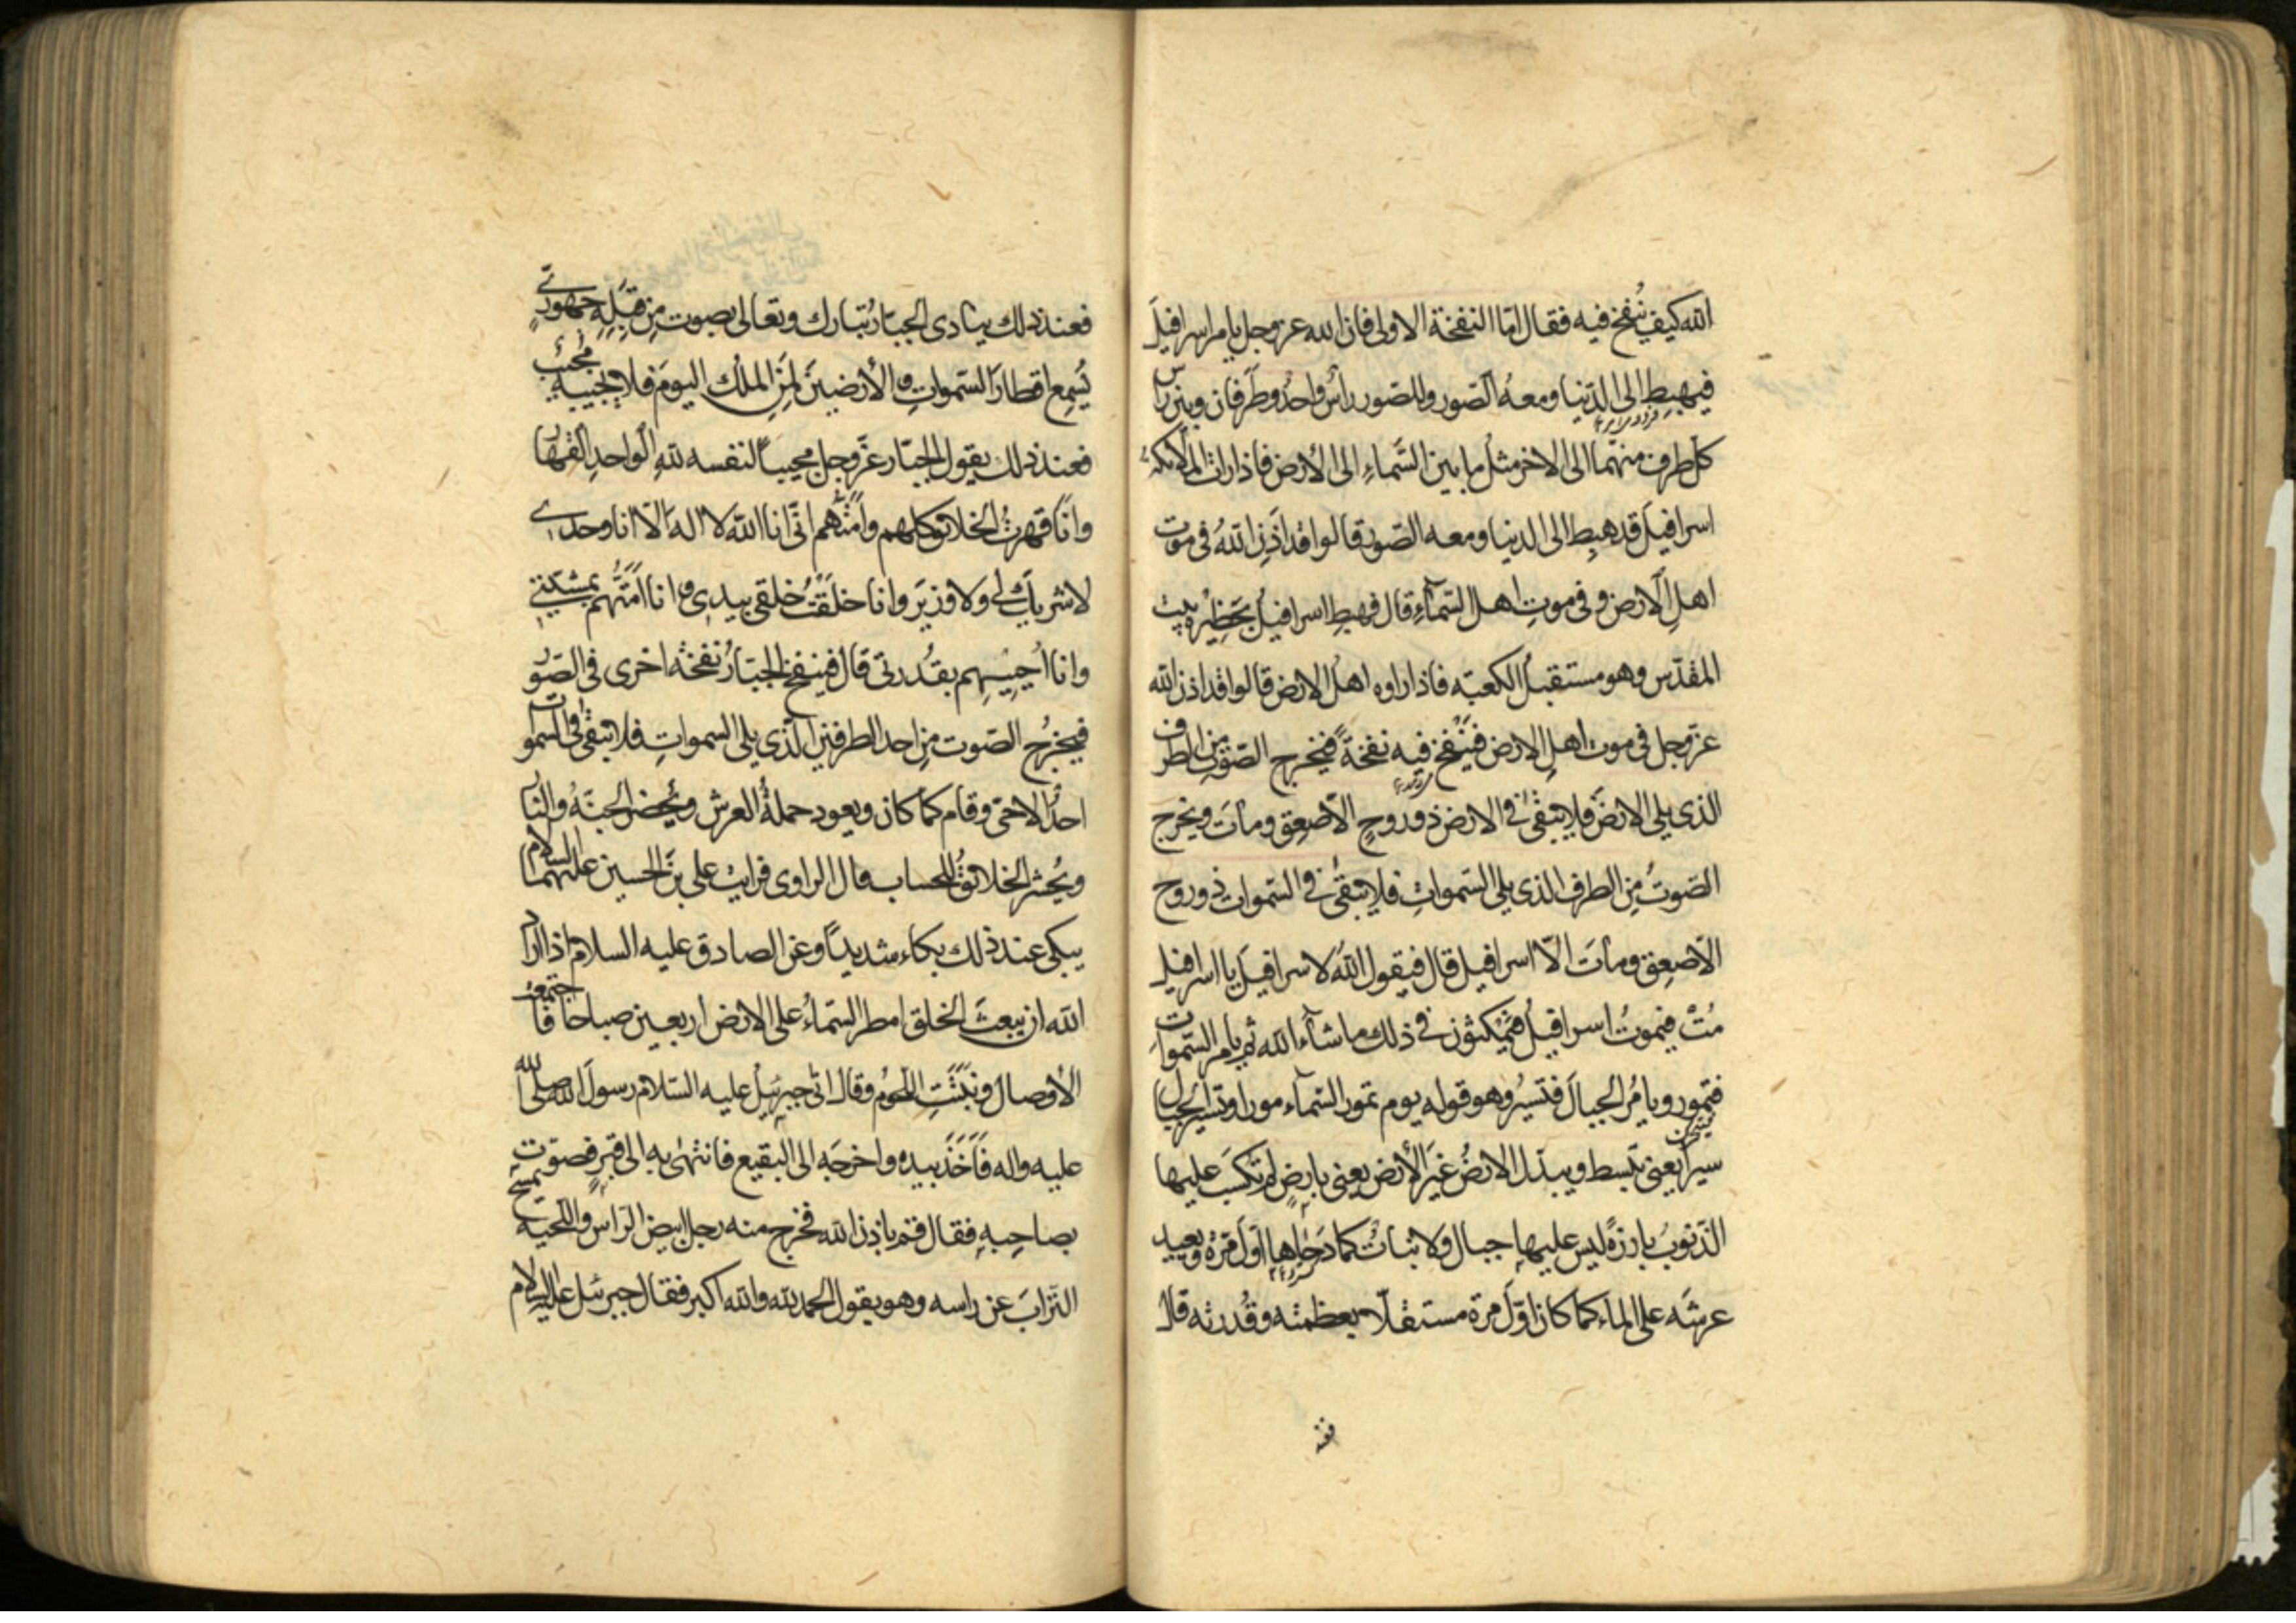 الله كيف يُنفخ فيه فقال امّا النفخة الاولى فان الله عز وجل يامر اسرافيل
فيهبط الى الدّنيا ومعه الصّور وللصّور راسٌ واحدٌ وطرفان وبين راس
كل طرف منهما الى الاخر مثل ما بين السّماءِ الى الأرض فاذا رات الملائكة
اسرافيل قد هبِط الى الدنيا ومعه الصّور قالوا قد اَذِنَ اللهُ في موت
اهلِ الأرض وفي موتِ اهل السّماءِ قال فهبط اسرافيلُ بحَظِيْرة بيت
المقدّس وهو مستقبلُ الكعبه فاذا راوه اهل الارض قالوا قد اذن الله
عزّ وجل في موت اهلِ الارض فيَنْفخ فيه نفخةً فيخرج الصّوت من الطرف
الذى يلى الارضَ فلا يبقىٰ في الارض ذو روحٍ الّا صعِق ومات ويخرج
الصّوتُ مِن الطرف الذى يلى السّمواتِ فلا يبقىٰ في السّموات ذو روح
الّا صعِق وماتَ الّا اسرافيل قال فيقول اللهُ لاسرافيلَ يا اسرافيل
مُتْ فيموتُ اسرافيلُ فيمكثون في ذلك ما شآء الله ثم يامر السّموات
فتمور ويامُر الجبالَ فتسيرُ وهو قوله يوم تمور السّمآء مورا وتسير الجبال
سيراً يعنى تبسط ويبدّل الارضُ غيرَ الأرض يعنى بارضٍ لم تكسَب عليها
الذّنوبُ بارزةً ليس عليها جبال ولا نباتٌ كما دَحٰاها اوّل مرّة ويعيد
عرشَه على الماء كما كان اوّلَ مرة مستقلّا بعظمته وقُدرته قال
فعند
فعند ذلك ينادى الجبّارُ تبارك وتعالى بصوت من قِبَلِهِ جهورىّ
يُسمِع اقطارَ السّمواتِ والأرضينَ لمَنِ الملُك اليومَ فلا يجيبه مُجيبٌ
فعند ذلك يقول الجبّار عزّ وجل مجيباً لنفسه للهِ الواحدِ القهّار
وانا قهرتُ الخلائق كلهم وامتُّهم انّى انا الله لا اله الّا انا وحدى
لا شريك لى ولا وزيرَ وانا خلقتُ خلقى بيدى وانا امتُّهم بمشيّتى
وانا اُحييهِم بقُدرتى قال فينفخ الجبّارُ نفخةً اخرى في الصّور
فيخرُج الصّوت مِن احد الطرفين الّذى يلى السمواتِ فلا يبقىٰ في السّموات
احدٌ الّا حىّ وقام كما كان ويعود حملةُ العرش ويُحضر الجنّةُ والنّار
ويُحشر الخلائقُ للحساب قال الراوى فرايت علي بن الحسين عليهما السلام
يبكى عند ذلك بكاء شديداً وعن الصادق عليه السلام اذا اراد
الله ان يبعثَ الخلق امطر السّماءُ على الارض اربعين صباحا فاجتمعت
الأوصال ونبتَتِ اللّحومُ وقال اتى جبرئيلُ عليه السّلام رسولَ الله صلى الله
عليه واله فَاَخَذَ بيده واخرجَه الى البقيع فانتهىٰ به الى قبرٍ فصوّت
بصاحِبهِ فقال قم باذن الله فخرج منه رجل ابيض الرّاس واللّحيه يمسح
التّرابَ عن راسه وهو يقول الحمد لله والله اكبر فقال جبرئيل عليه السلام